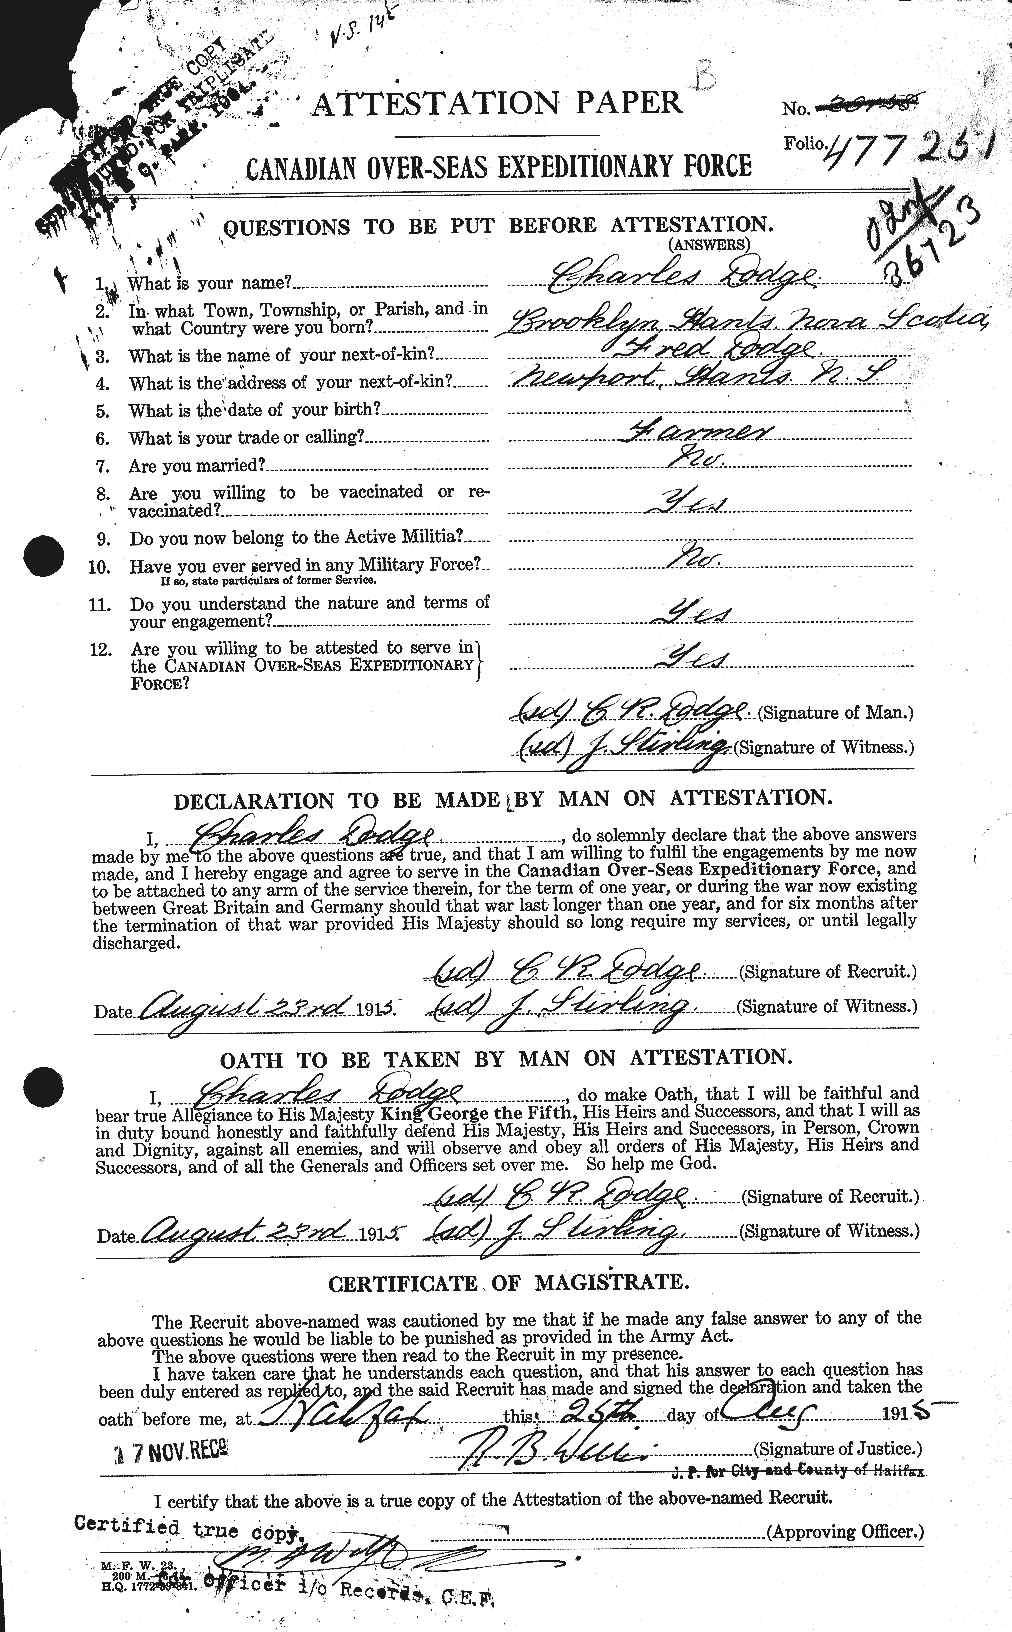 N.S. 145
B
TRUE COPY
TRIPLICATE
ATTESTATION PAPER
No.
Folio. 477251
CANADIAN OVER-SEAS EXPEDITIONARY FORCE
36723
QUESTIONS TO BE PUT BEFORE ATTESTATION.
(ANSWERS)
1. What is your name? Charles Dodge.
2. In what Town, Township, or Parish, and in
what Country were you born? Brooklyn, Hants. Nova Scotia,
3. What is the name of your next-of-kin? Fred Dodge.
4. What is the address of your next-of-kin? Newport, Hants. N. S
5. What is the date of your birth?
6. What is your trade or calling? Farmer
7. Are you married? No.
8. Are you willing to be vaccinated or re-
vaccinated? Yes
9. Do you now belong to the Active Militia?
10. Have you ever served in any Military Force? No.
If so, state particulars of former Service.
11. Do you understand the nature and terms of
your engagement? Yes
12. Are you willing to be attested to serve in
the CANADIAN OVER-SEAS EXPEDITIONARY Yes
FORCE?
(sd) C R. Dodge. (Signature of Man.)
(sd) J. Stirling. (Signature of Witness.)
DECLARATION TO BE MADE BY MAN ON ATTESTATION.
I, Charles Dodge, do solemnly declare that the above answers
made by me to the above questions are true, and that I am willing to fulfil the engagements by me now
made, and I hereby engage and agree to serve in the Canadian Over-Seas Expeditionary Force, and
to be attached to any arm of the service therein, for the term of one year, or during the war now existing
between Great Britain and Germany should that war last longer than one year, and for six months after
the termination of that war provided His Majesty should so long require my services, or until legally
discharged.
(sd) C R. Dodge. (Signature of Recruit.)
Date August 23rd 1915. (sd) J. Stirling. (Signature of Witness.)
OATH TO BE TAKEN BY MAN ON ATTESTATION.
I, Charles Dodge, do make Oath, that I will be faithful and
bear true Allegiance to His Majesty King George the Fifth, His Heirs and Successors, and that I will as
in duty bound honestly and faithfully defend His Majesty, His Heirs and Successors, in Person, Crown
and Dignity, against all enemies, and will observe and obey all orders of His Majesty, His Heirs and
Successors, and of all the Generals and Officers set over me. So help me God.
(sd) C R. Dodge. (Signature of Recruit.)
Date August 23rd 1915. (sd) J. Stirling. (Signature of Witness.)
CERTIFICATE OF MAGISTRATE.
The Recruit above-named was cautioned by me that if he made any false answer to any of the
above questions he would be liable to be punished as provided in the Army Act.
The above questions were then read to the Recruit in my presence.
I have taken care that he understands each question, and that his answer to each question has
been duly entered as replied to, and the said Recruit has made and signed the declaration and taken the
oath before me, at Halifax this 25th day of Aug 1915
17 NOV. REC'D
(Signature of Justice.)
J. P. for City and County of Halifax
I certify that the above is a true copy of the Attestation of the above-named Recruit.
Certified true copy.
(Approving Officer.)
M. F. W. 23.
200 M.
H.Q. 1772
for Officer i/c Records, C.E.F.